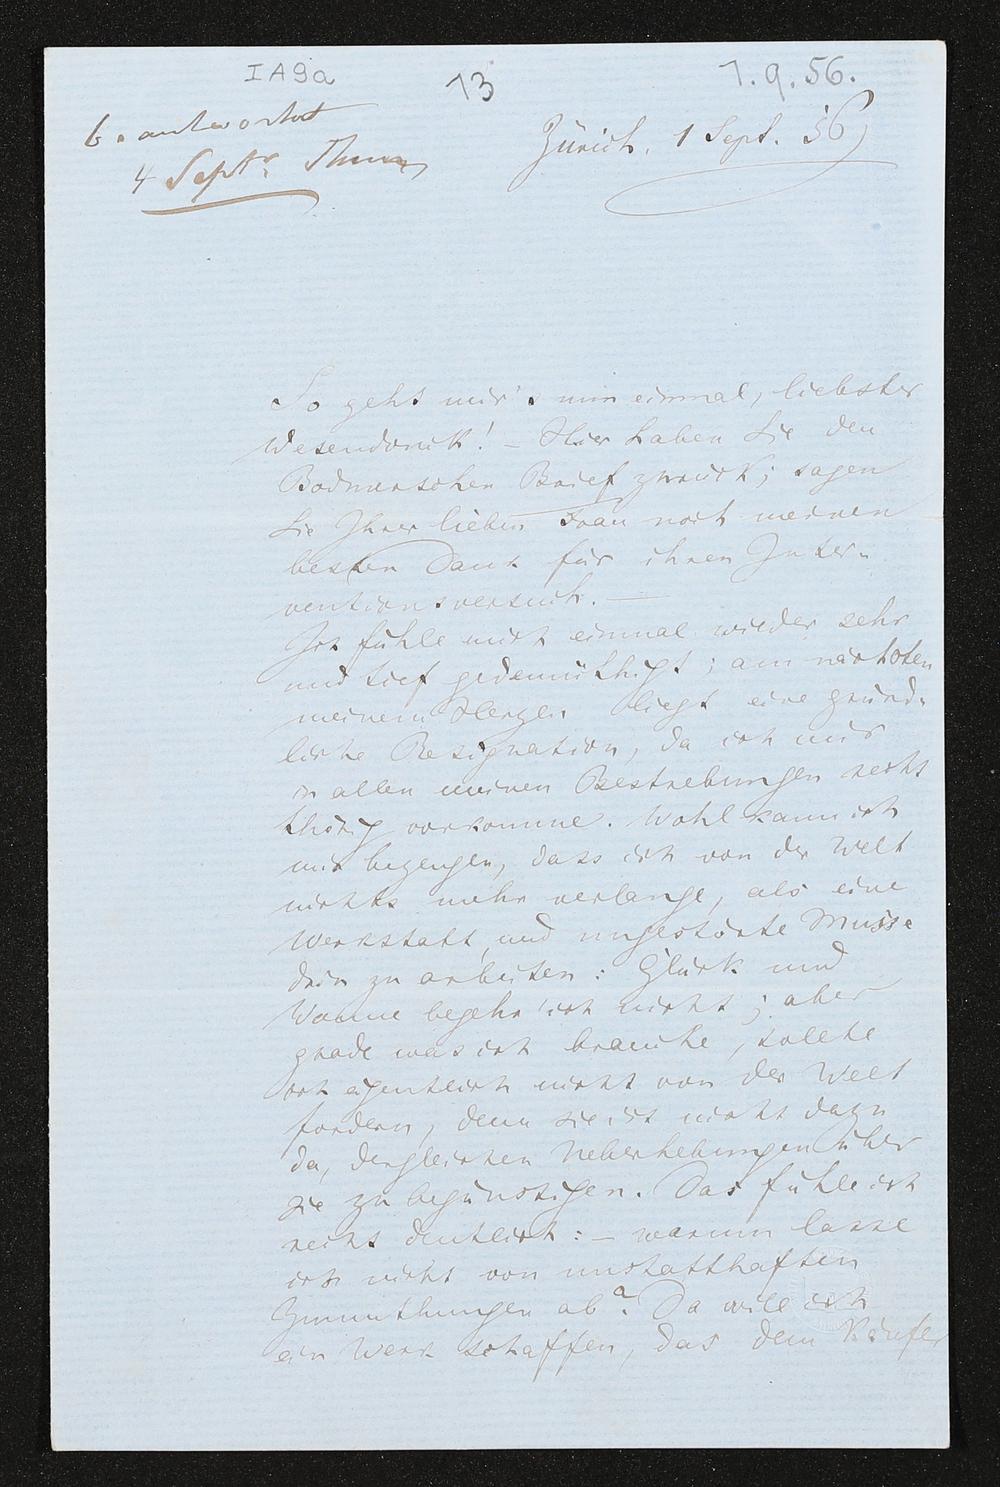 IA9a
13
1.9.56.
beantwortet
4 Septr Thun
Zürich, 1 Sept. 56
So geht mir's nun einmal, liebster
Wesendonck! – Hier haben Sie den
Bodmerschen Brief zurück; sagen
Sie Ihrer lieben Frau noch meinen
besten Dank für ihren Inter-
ventionsversuch. —
Ich fühle mich einmal wieder sehr
und tief gedemüthigt; am nächsten
meinem Herzen liegt eine gründ-
liche Resignation, da ich mir
in allen meinen Bestrebungen recht
thörig vorkomme. Wohl kann ich
mir bezeugen, dass ich von der Welt
nichts mehr verlange, als eine
Werkstatt, und ungestörte Musse
drin zu arbeiten: Glück und
Wonne begehr' ich nicht; aber
grade was ich brauche, sollte
ich eigentlich nicht von der Welt
fordern, denn sie ist nicht dazu
da, dergleichen Ueberhebungen über
sie zu begünstigen. Das fühle ich
recht deutlich: – warum lasse
ich nicht von unstatthaften
Zumuthungen ab? Da will ich
ein Werk schaffen, das dem Käufer